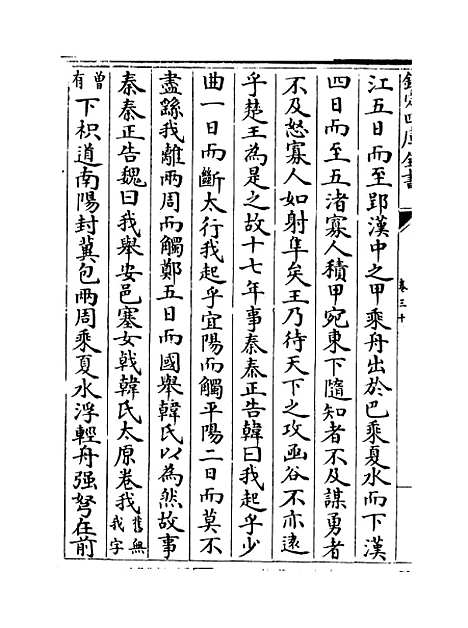 欽定四庫全書
卷三十
江五日而至郢漢中之甲乘舟出於巴乘夏水而下漢
四日而至五渚寡人積甲宛東下隨知者不及謀勇者
不及怒寡人如射隼矣王乃待天下之攻函谷不亦遠
乎楚王為是之故十七年事秦秦正告韓曰我起乎少
曲一日而斷太行我起乎宜陽而觸平陽二日而莫不
盡繇我離兩周而觸鄭五日而國舉韓氏以為然故事
秦秦正告魏曰我舉安邑塞女戟韓氏太原卷我舊無我字
曾有下枳道南陽封冀包兩周乘夏水浮輕舟强弩在前